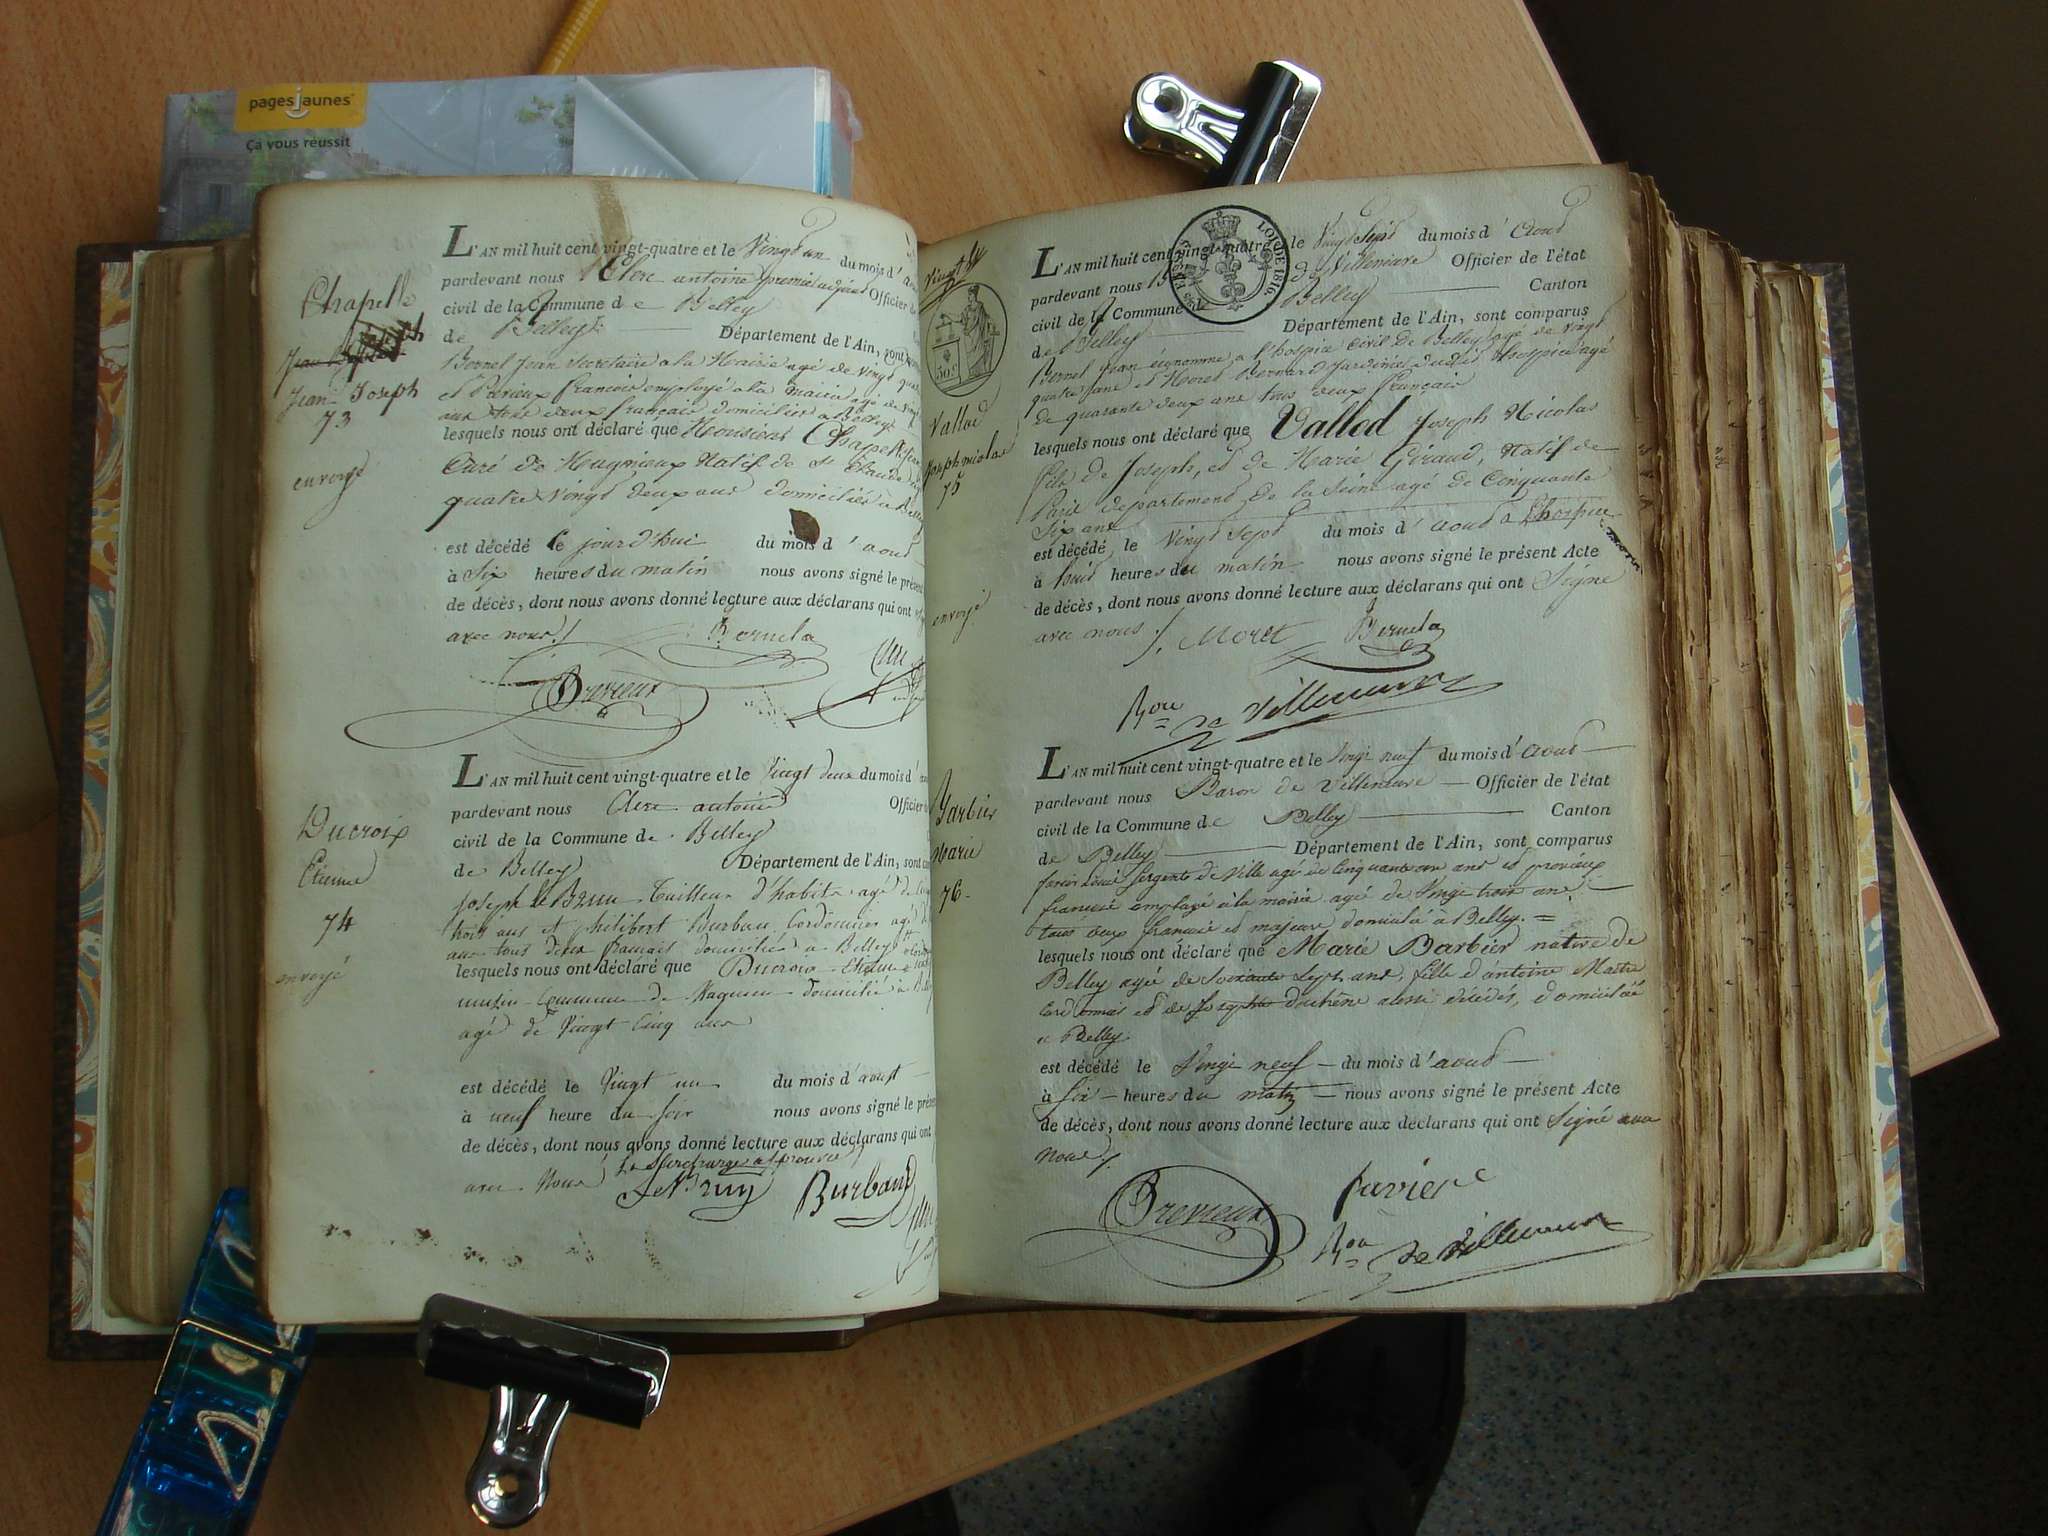 pagesjaunes
Ça vous réussit
Chapelle
Jean Joseph
73
envoyé
L'AN mil huit cent vingt-quatre et le Vingt un du mois d'
pardevant nous Clerc antoine premier adjoint Officier
civil de la Commune de Belley
de Belley Département de l'Ain, sont
Bornel Jean Secretaire a la Mairie agé de vingt quatre
et Prévieux françois employé a la mairie agé de vingt
ans tous deux français domiciliés a Belley
lesquels nous ont déclaré que Monsieur Chapelle
Curé de Magnieux Natif de St Claude
quatre Vingt deux ans domicilié a Belley
est décédé le jour d'hui du mois d'aout
à Six heures du matin nous avons signé le présent
de décès, dont nous avons donné lecture aux déclarans qui ont
avec nous./
Previeux
Ducroix
Etienne
74
envoyé
L'AN mil huit cent vingt-quatre et le Vingt deux du mois d'
pardevant nous Clerc antoine Officier
civil de la Commune de Belley
de Belley Département de l'Ain, sont
Joseph le Brun Tailleur d'habits agé de
trois ans et philibert Burban Cordonnier agé
ans tous deux français domiciliés à Belley
lesquels nous ont déclaré que Ducroix Etienne
Commune de domicilié à
agé de Vingt Cinq ans
est décédé le Vingt un du mois d'aoust
à neuf heure du Soir nous avons signé le présent
de décès, dont nous avons donné lecture aux déclarans qui ont
avec Nous
Burband
LOI DE 1816.
50 c
Vallod
Joseph nicolas
75
envoyé
L'AN mil huit cent vingt-quatre et le Vingt Sept du mois d'Aout
pardevant nous de Villeneuve Officier de l'état
civil de la Commune de Belley Canton
de Belley Département de l'Ain, sont comparus
Bornel Jean économme a l'hospice Civil de Belley agé de vingt
quatre ans et Moret Bernard Jardinier dudit hospice agé
de quarante deux ans tous deux français
lesquels nous ont déclaré que Vallod Joseph Nicolas
fils de Joseph, et de Marie Giraud, Natif de
Paris departement de la Seine agé de Cinquante
Six ans
est décédé le Vingt Sept du mois d'aout a L'hospice
à huit heures du matin nous avons signé le présent Acte
de décès, dont nous avons donné lecture aux déclarans qui ont Signé
avec nous ./. Moret
Bon de Villeneuve
Barbier
Marie
76.
L'AN mil huit cent vingt-quatre et le Vingt neuf du mois d'aout
pardevant nous Baron de Villeneuve Officier de l'état
civil de la Commune de Belley Canton
de Belley Département de l'Ain, sont comparus
Sergent de Ville agé de Cinquante un ans et prévieux
françois employé à la mairie agé de Vingt trois ans
tous deux français et majeurs domicilié a Belley.
lesquels nous ont déclaré que Marie Barbier native de
Belley agée de Soixante Sept ans, fille d'antoine Maitre
Cordonnier et de Josephte duchêne aussi décédés, domiciliée
a Belley
est décédé le Vingt neuf du mois d'aout
à Six heures du matin nous avons signé le présent Acte
de décès, dont nous avons donné lecture aux déclarans qui ont Signé avec
nous /.
Previeux
Bon de Villeneuve